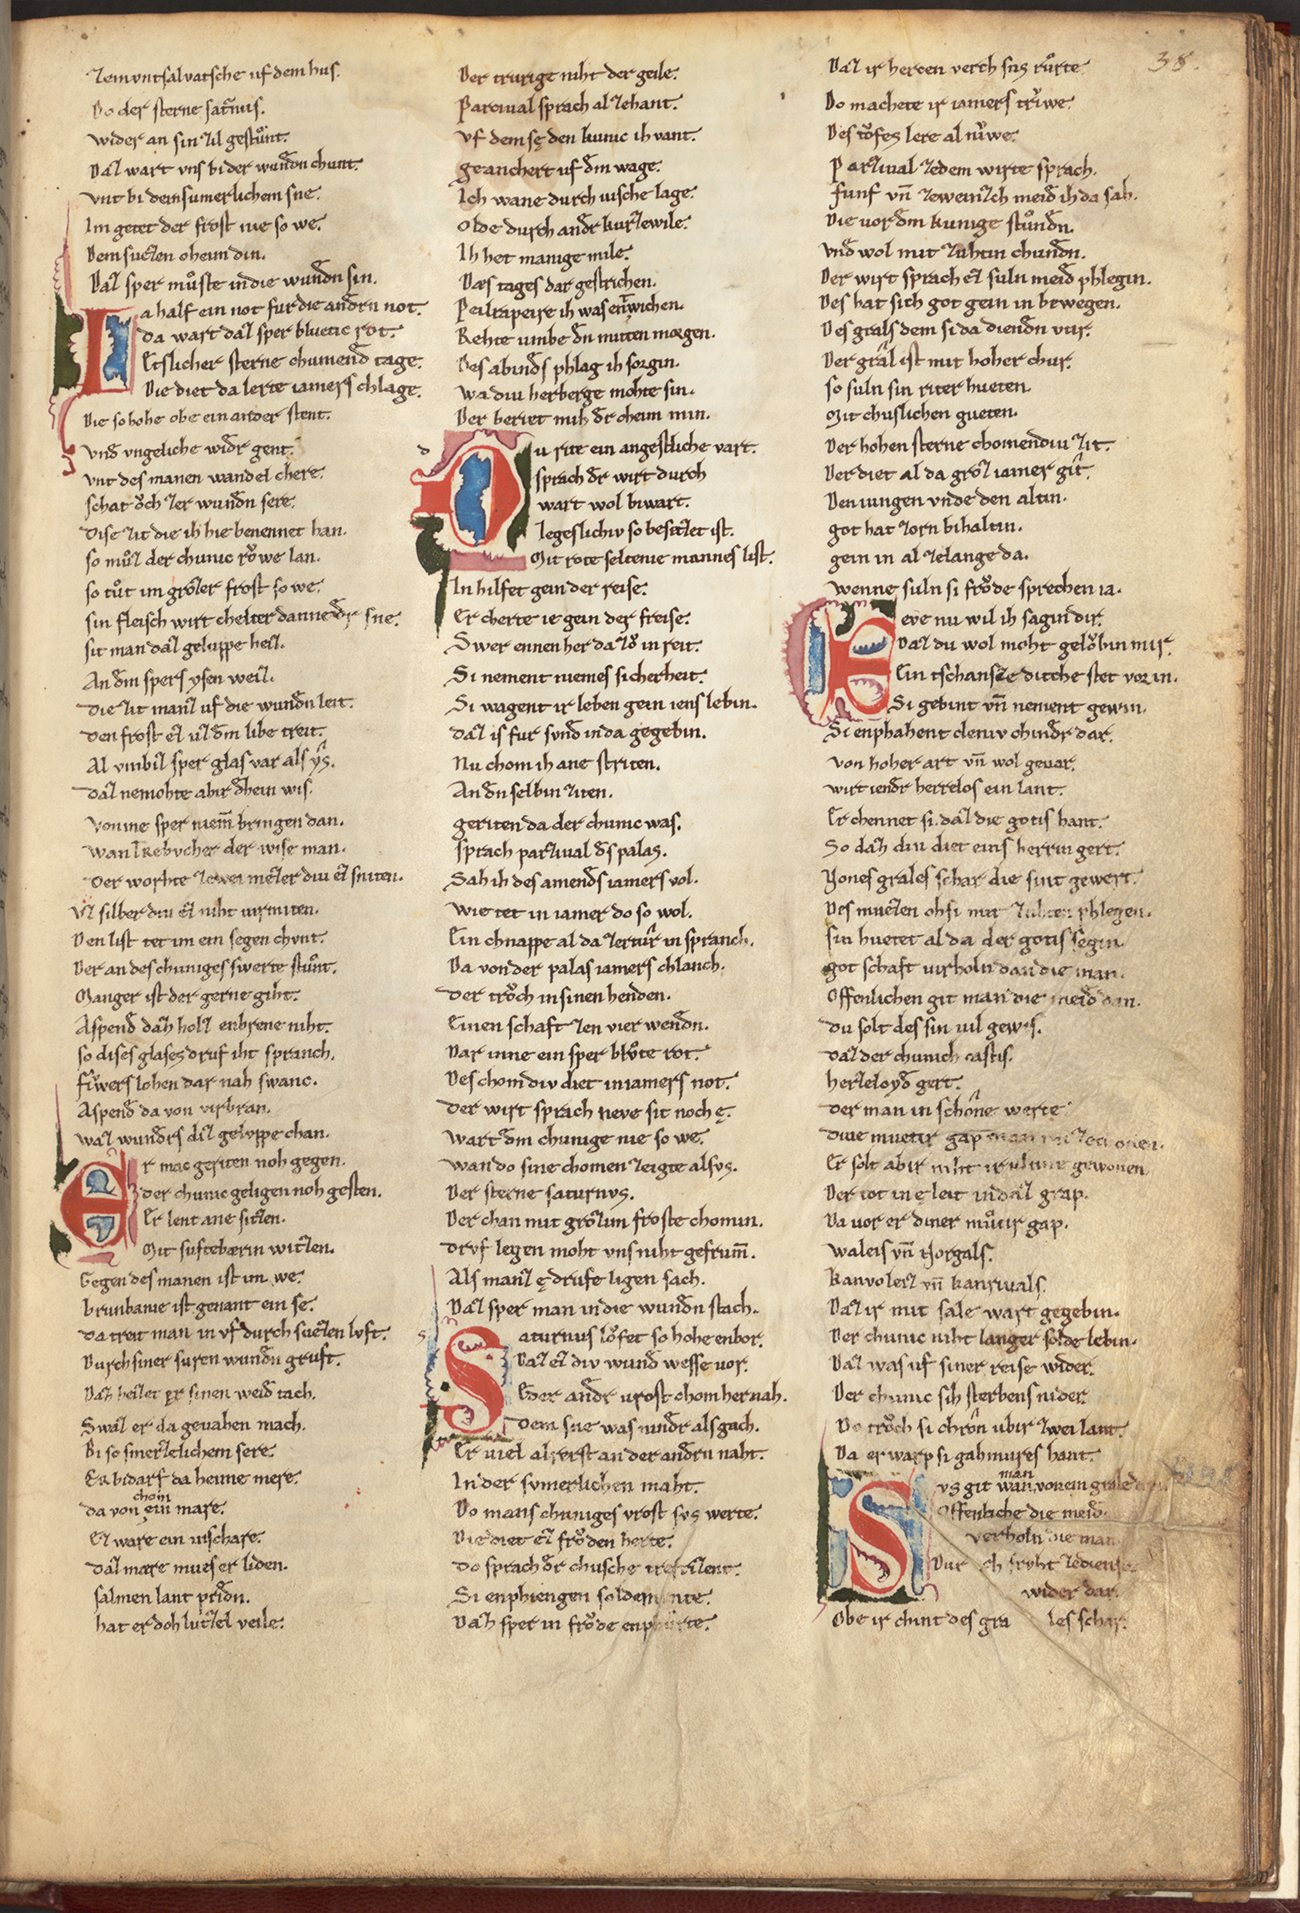 38.
zemuntsalvatsche uf dem hus.
Do der sterne sat̄nus.
wider an sin zil gestuͦnt.
Daz wart uns bi der wundn chunt.
vnt bi dem sumerlichem sne.
Im getet der frost nie so we.
Dem suezen oheim din.
Daz sper muͦste in die wundn sin.
Da half ein not fur die andern not.
da wart daz sper bluetic rot.
Etslicher sterne chumend tage.
Die diet da lerte iamers chlage.
Die so hohe obe ein ander stent.
vnd vngeliche widr gent.
vnt des manen wandel chere.
schat oͮch zer wundn sere.
Dise zit die ih hie benennet han.
so muͦz der chunic roͮwe lan.
so tuͦt im grozer frost so we.
sin fleisch wirt chelter danne dr sne.
sit man daz geluppe heiz.
An dm spers ysen weiz.
Die zit manz uf die wundn leit.
Den frost ez uz dm libe treit.
Al vmbiz sper glas var als ys.
daz nemohte abir dhein wis.
von me sper niem̄ bringen dan.
wan trebvcher der wise man.
Der worhte zewei mezer diu ez sniten.
vz silber diu ez niht virmiten.
Den list tet im ein segen chvnt.
Der an des chuniges swerte stuͦnt.
Manger ist der gerne giht.
Aspend daz holz enbrene niht.
so dises glases druf iht spranch.
fiwers lohen dar nah swanc.
Aspend da von virbran.
waz wundrs diz geluppe chan.
Er mac geriten noh gegen.
der chunic geligen noh gesten.
Er lent ane sitzen.
Mit suftebærin witzen.
Gegen des manen ist im we.
brunbanie ist genant ein se.
da treit man in vf durch suezen luft.
Durch siner suren wundn gruft.
Daz heizet er sinen weid tach.
Swaz er da gevahen mach.
Bi so smerzlichem sere.
Er bidarf da heime mere.
da von chom ein mære.
Er ware ein vischare.
daz mare mues er liden.
salmen lant pridn.
hat er doh luzzel veile.
Der trurige niht der geile.
Parcival sprach al zehant.
vf dem se den kunic ih vant.
geanchert uf dm wage.
Ich wane durch vische lage.
Olde durch andr kurzewile.
Ih het manige mile.
Des tages dar gestrichen.
Peilrapeire ih was entwichen.
Rehte umbe dn mitten morgen.
Des abinds phlag ih sorgin.
wa diu herberge mohte sin.
Der beriet mih dr oheim min.
d
Du rite ein angestliche vart.
sprach dr wirt durch
wart wol biwart.
Iegeslichiv so besezzet ist.
Mit rote seltenie mannes list.
In hilfet gein der reise.
Er cherte ie gein der freise.
Swer ennen her da zoͮ in reit.
Si nement niemes sicherheit.
Si wagent ir leben gein iens lebin.
daz is fur svnd in da gegebin.
Nu chom ih ane striten.
An dn selbin ziten.
geriten da der chunic was.
sprach parzival ds palas.
Sah ih des amends iamers vol.
wie tet in iamer do so wol.
Ein chnappe al da zer tuͤr in spranch.
Da von der palas iamers chlanch.
der troͮch in sinen henden.
Einen schaft zen vier wendn.
Dar inne ein sper bluͦte rot.
Des chom div diet in iamers not.
der wirt sprach neve sit noch e.
wart dm chunige nie so we.
wan do sine chomen zeigte alsvs.
Der sterne saturnvs.
Der chan mit grozim froste chomin.
drvf legen moht vns niht gefrum̄.
Als manz e drufe ligen sach.
Daz sper man in die wundn stach.
s
Saturnus loͮfet so hohe enbor.
Daz ez div wund wesse vor.
E der andr vrost chom her nah.
Dem sne was nindr als gach.
Er viel alrerst an der andrn naht.
In der svmerlichen maht.
Do mans chuniges vrost svs werte.
Die diet ez froͮden herte.
do sprach dr chusche trefrizent.
Si enphiengen solde iamers rente.
Daz sper in froͮde enphuͦrte.
Daz ir hercen verch sus ruͦrte
Do machete ir iamers triwe.
Des toͮfes lere al niͮwe.
Parzival ze dem wirte sprach.
funf vn̄ zeweinzch meid ih da sah.
Die vor dm kunige stuͦndn.
vnd wol mit zuhtin chundn.
Der wirt sprach ez suln meid phlegin.
Des hat sich got gein in bewegen.
Des grals dem si da diendn vur.
Der gral ist mit hoher chur.
so suln sin riter hueten.
Mit chuslichen gueten.
Der hohen sterne chomendiu zit.
Der diet al da groz iamer git.
Den iungen vnde den altin.
got hat zorn bihaltin.
gein in al ze lange da.
wenne suln si froͮde sprechen ia.
Neve nu wil ih sagin dir.
Daz du wol moht geloͮbin mir.
Ein tschanze dicche stet vor in.
Si gebint vn̄ nement gewin.
Si enphahent cleniv chindr dar.
von hoher art vn̄ wol gevar.
wirt iendr herrelos ein lant.
Er chennet si daz die gotis hant.
So daz diu diet eins herrin gert.
Vones grales schar die sint gewert.
Des muezen ohsi mit zuhten phlegen.
sin huetet al da der gotis segin.
got schaft virholn dan die man.
Offenlichen git man die meid dan.
du solt des sin vil gewis.
daz der chunich castis.
herzeloyd gert.
der man in schone werte
Er solt abir niht ir minne gewonen
Der tot in e leit in daz grap.
Da vor er diner muͦtir gap.
waleis vn̄ Norgals.
kanvoleiz vn̄ kanrivals.
Daz ir mit sale wart gegebin.
Der chunic niht langer solde lebin.
Daz was uf siner reise wider.
Der chunic sih sterbens nider.
Do troͮch si chron ubir zwei lant.
Da erwarp si gahmures hant.
Svs git man wan vonem grale dan
Offenliche die meid.
verholn die man
Dur ch fruht ze dienst
wider dar.
Obe ir chint des gra les schar.